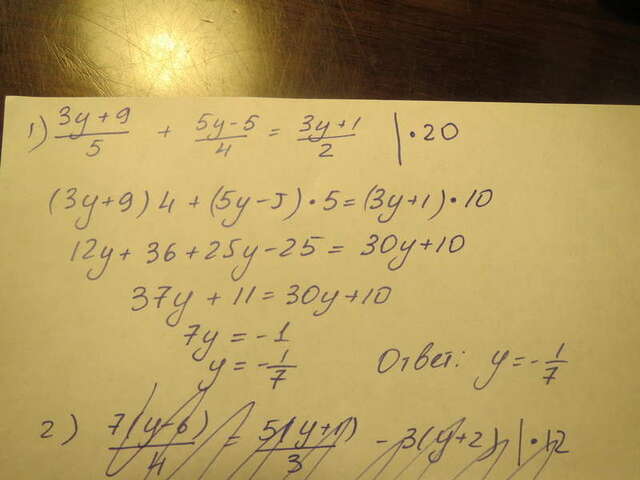 1) (3y+9)/5 + (5y-5)/4 = (3y+1)/2 | • 20
(3y+9)4+(5y-5)•5=(3y+1)•10
12y+36+25y-25=30y+10
37y+11=30y+10
7y=-1
y=-1/7 Ответ: y=-1/7
2) 7(y-6)/4 = 5(y+1)/3 - 3(y+2) | • 12